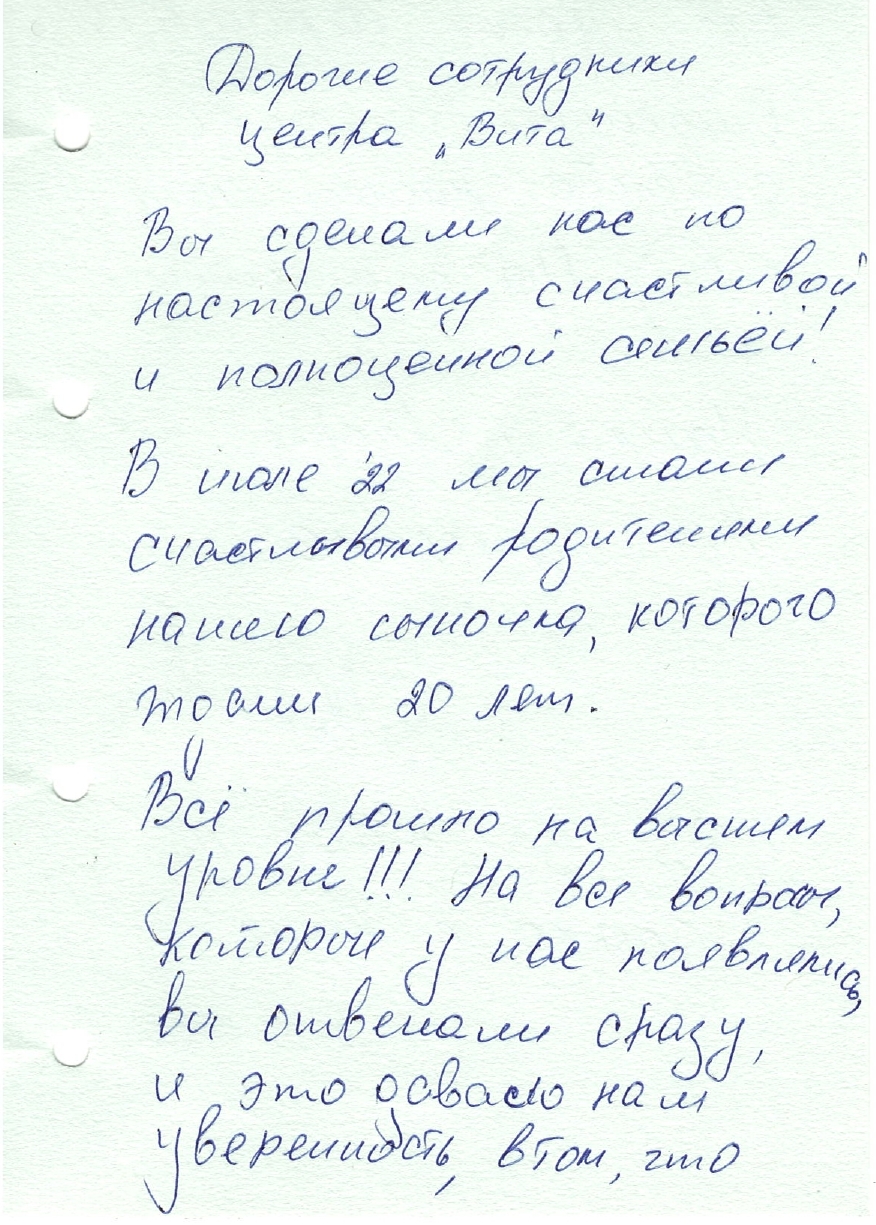 Дорогие сотрудники
центра „Вита"
Вы сделали нас по
настоящему счастливой
и полноценной семьёй!
В июле '22 мы стали
счастливыми родителями
нашего сыночка, которого
ждали 20 лет.
Всё прошло на высшем
уровне!!! На все вопросы,
которые у нас появлялись,
вы отвечали сразу,
и это давало нам
уверенность, в том, что